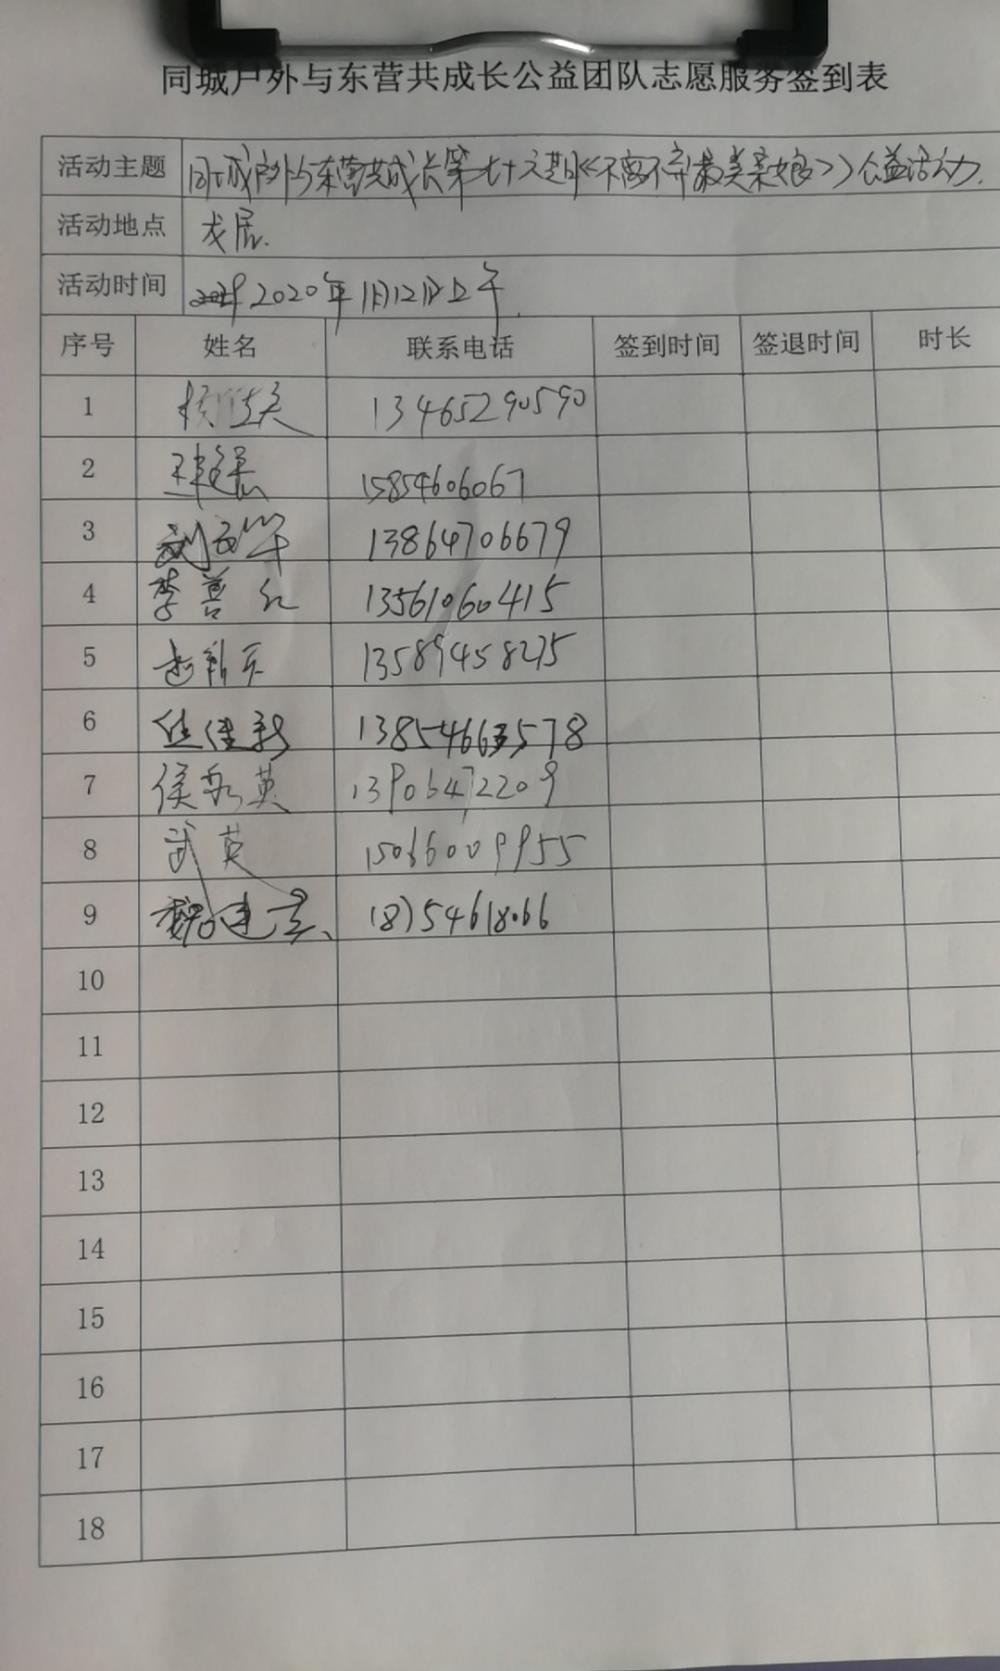 同城户外与东营共成长公益团队志愿服务签到表
活动主题 同城户外与东营共成长第七十六期《不离不弃最美亲娘》公益活动.
活动地点 龙居.
活动时间 2020年1月12日上午
序号 姓名 联系电话 签到时间 签退时间 时长
1 13465290590
2 15854606067
3 13864706679
4 李善红 13561060415
5 赵新天 13589458275
6 任佳新
7 侯永英 13906472209
8 武英 15066009955
9 魏建京 18754618066
10
11
12
13
14
15
16
17
18